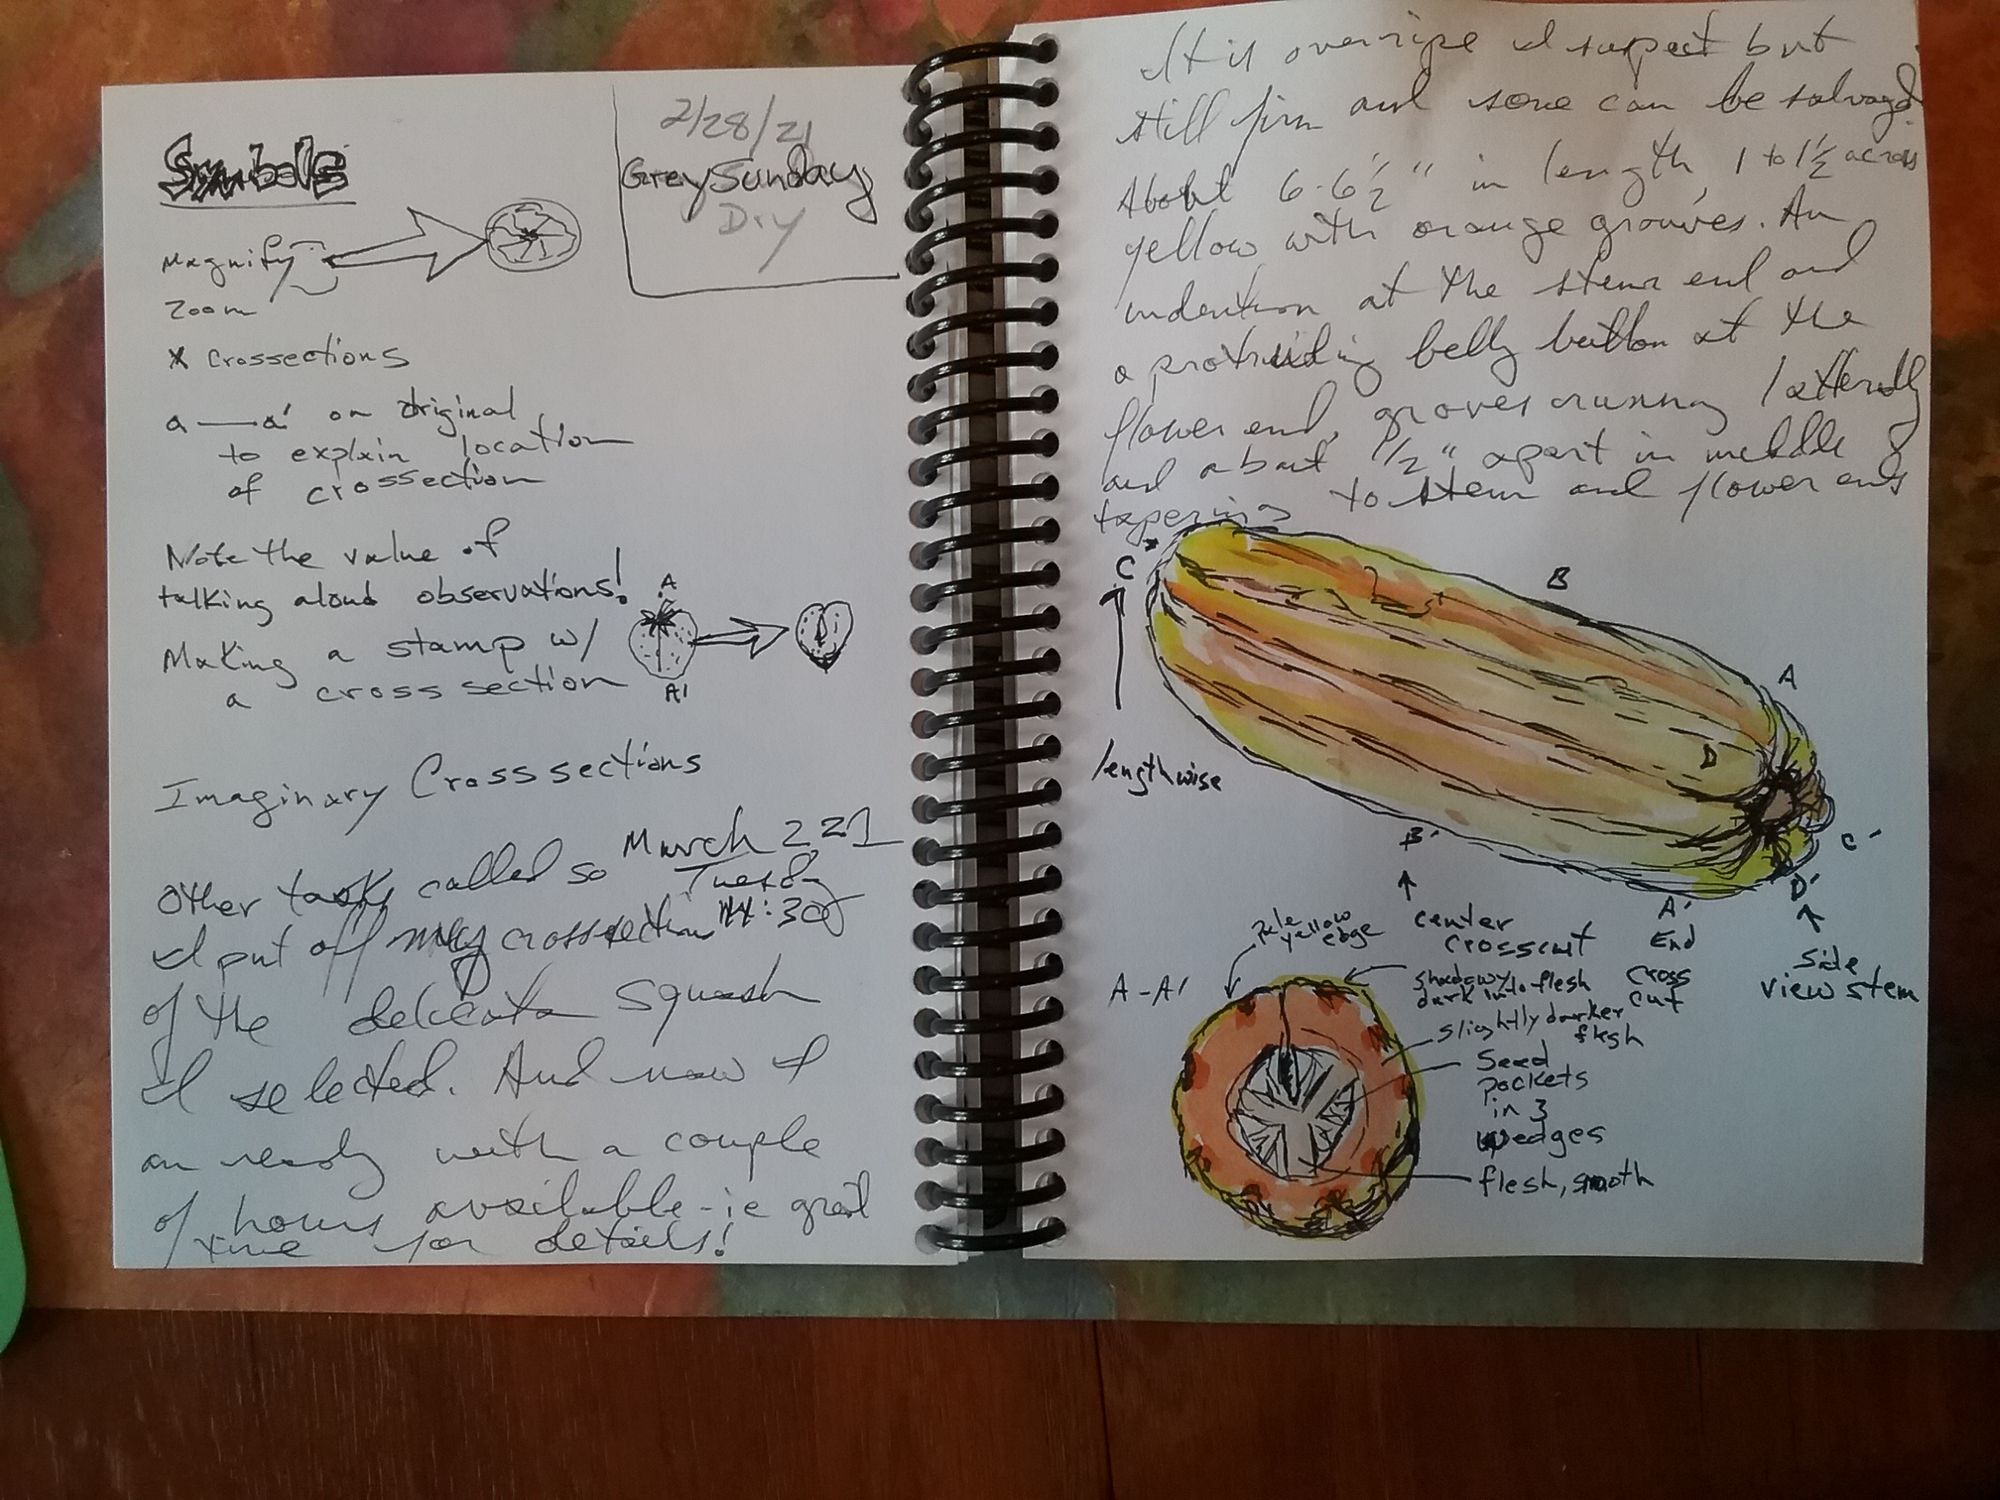 Symbols
2/28/21
Grey Sunday
Dry
Magnify
Zoom
X Crossections
a — a' on original
to explain location
of crossection
Note the value of
talking aloud observations!
Making a stamp w/
a cross section
A
A1
Imaginary Crosssections
March 2, 21
Tuesday
Other tasks called so
I put off my crosssection
of the delicata squash
I selected. And now I
am ready with a couple
of hours available - ie great
time for details!
It is overripe I suspect but
still firm and some can be salvaged.
About 6-6½" in length, 1 to 1½ across
yellow with orange grooves. An
indention at the stem end and
a protruding belly button at the
flower end, groves running latterally
and about 1/2" apart in middle &
tapering to stem and flower ends
C
B
A
D
lengthwise
B'
C'
D'
A'
center
crosscut
End
cross
cut
side
view stem
A-A1
pale
yellow
edge
shadowy
dark into flesh
slightly darker
flesh
Seed
pockets
in 3
wedges
flesh, smooth